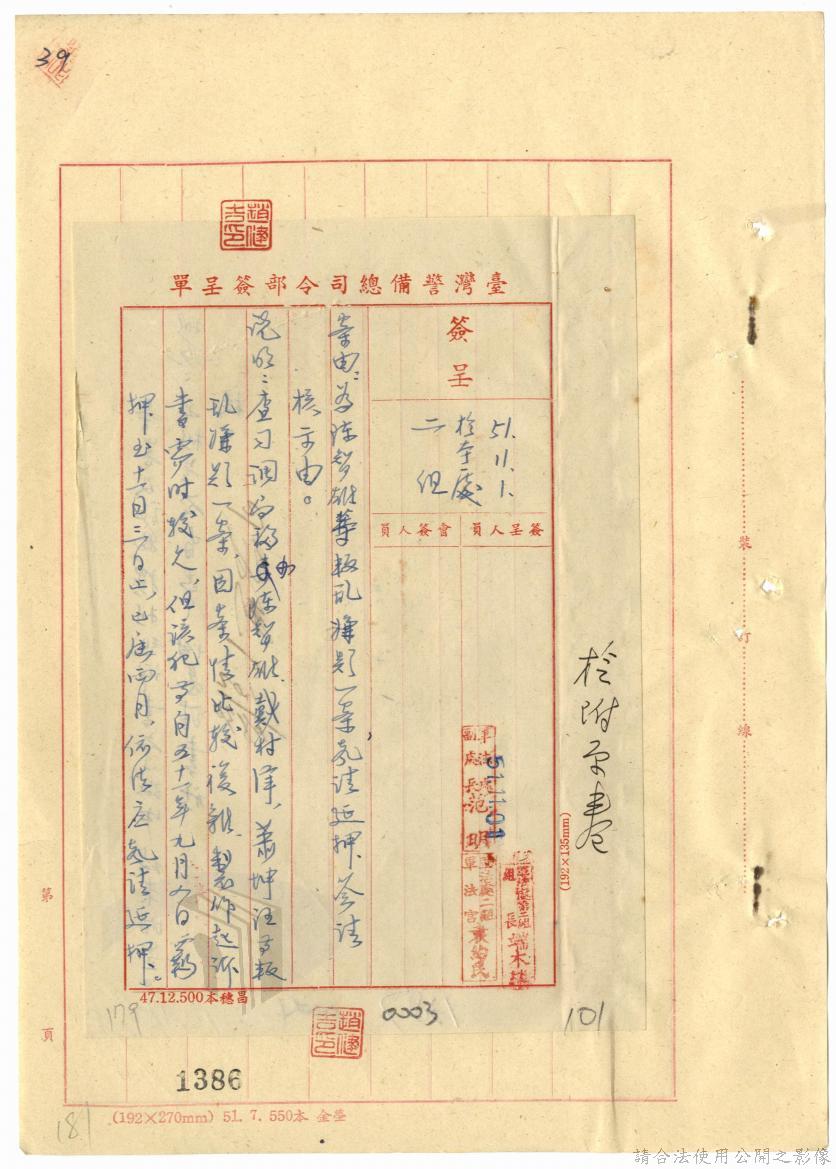 39
臺灣警備總司令部簽呈單
簽呈
51.11.1.
檢察處
二組
簽呈人員
會簽人員
案由:為陳智雄等叛亂嫌疑一案,承請延押、簽請
核示由。
說明:查可調的
陳智雄、戴村澤、蕭坤旺等叛
亂嫌疑一案,因案情比較複雜、製作起訴
書需時較久,但該犯等自五十一年九月
日羈
押至十一月三日止,已屆兩月,依法應承請延押、。
軍法處
副處長范明
511101
軍法官
組長端木
檢附原卷
(192×135mm)
裝訂線
47.12.500本穗昌
179
0003
101
趙健
1386
第
頁
(192×270mm) 51.7.550本 金瑩
18
請合法使用公開之影像